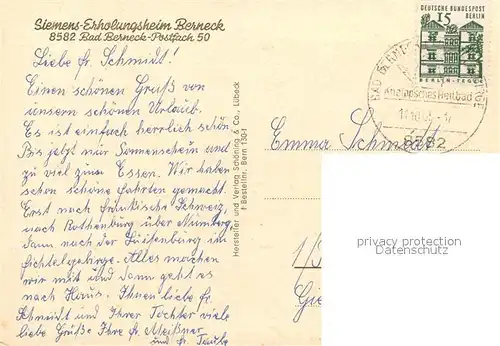 Siemens-Erholungsheim Berneck
8582 Bad Berneck-Postfach 50
Liebe fr. Schmidt!
Einen schönen Gruß von
unsern schönen Urlaub.
Es ist einfach herrlich schön.
Bis jetzt nur Sonnenschein und
zu viel zum Essen. Wir haben
schon schöne fahrten gemacht.
Erst nach fränkische Schweiz,
nach Rothenburg über Nürnberg,
dann nach der Luisenburg im
fichtelgebirge. Alles machen
wir mit und dann geht es
nach Haus. Ihnen liebe fr.
Schmidt und Ihrer Tochter viele
liebe Grüße Ihre fr. Meißner
und fr.
Hersteller und Verlag Schöning & Co., Lübeck
Bestellnr. Bern 1304
DEUTSCHE BUNDESPOST
BERLIN
15
BERLIN-TEGEL
BAD BERNECK
Kneippsches Heilbad
8582
Emma Schmidt
privacy protection
DATENSCHUTZ